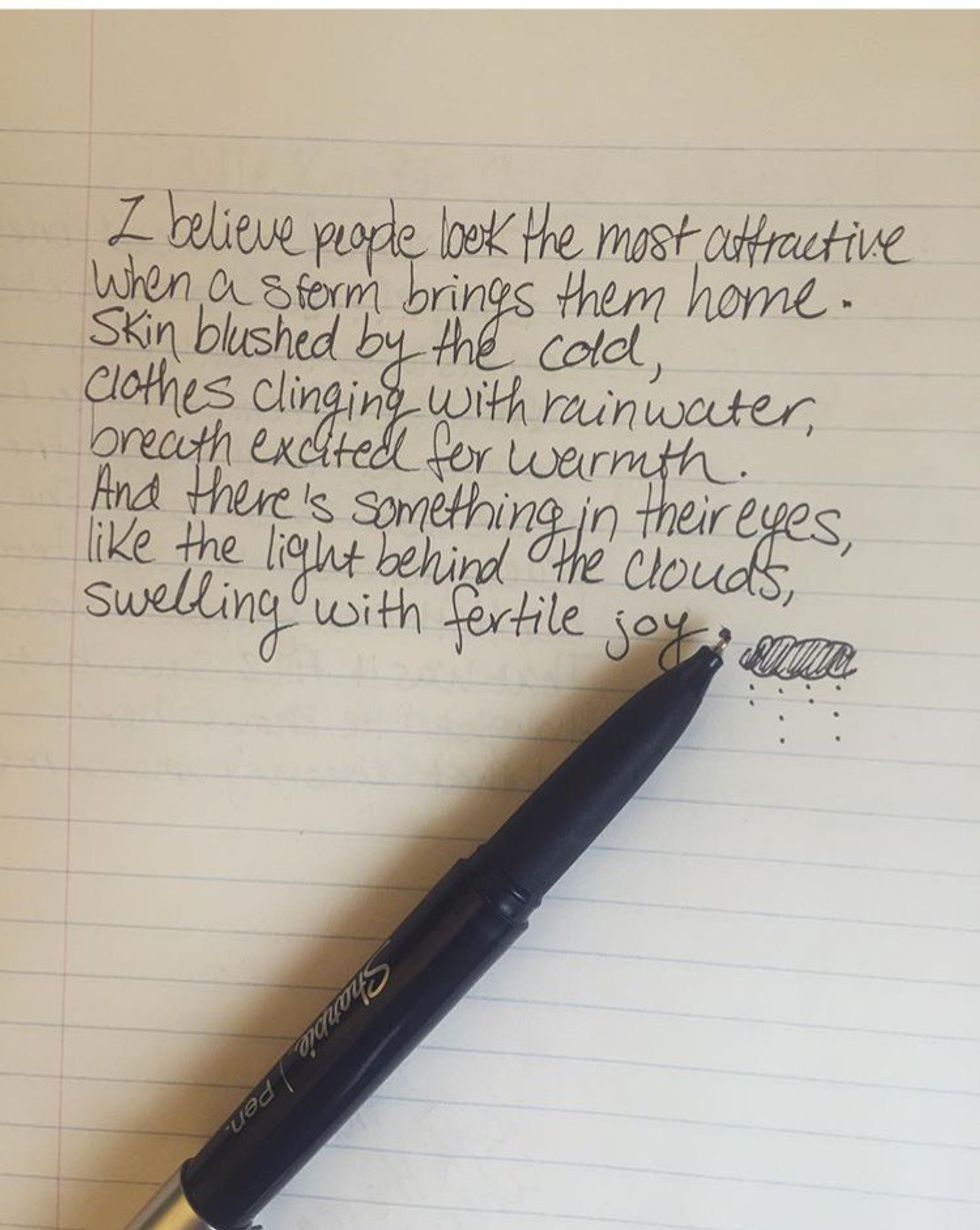 I believe people look the most attractive
when a storm brings them home.
Skin blushed by the cold,
clothes clinging with rainwater,
breath excited for warmth.
And there's something in their eyes,
like the light behind the clouds,
swelling with fertile joy.
Sharpie | Pen.